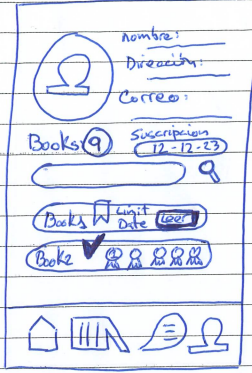 Nombre:
Dirección:
Correo:
Books 9
Suscripcion
12-12-23
Book1 Limit Date Leer
Book2